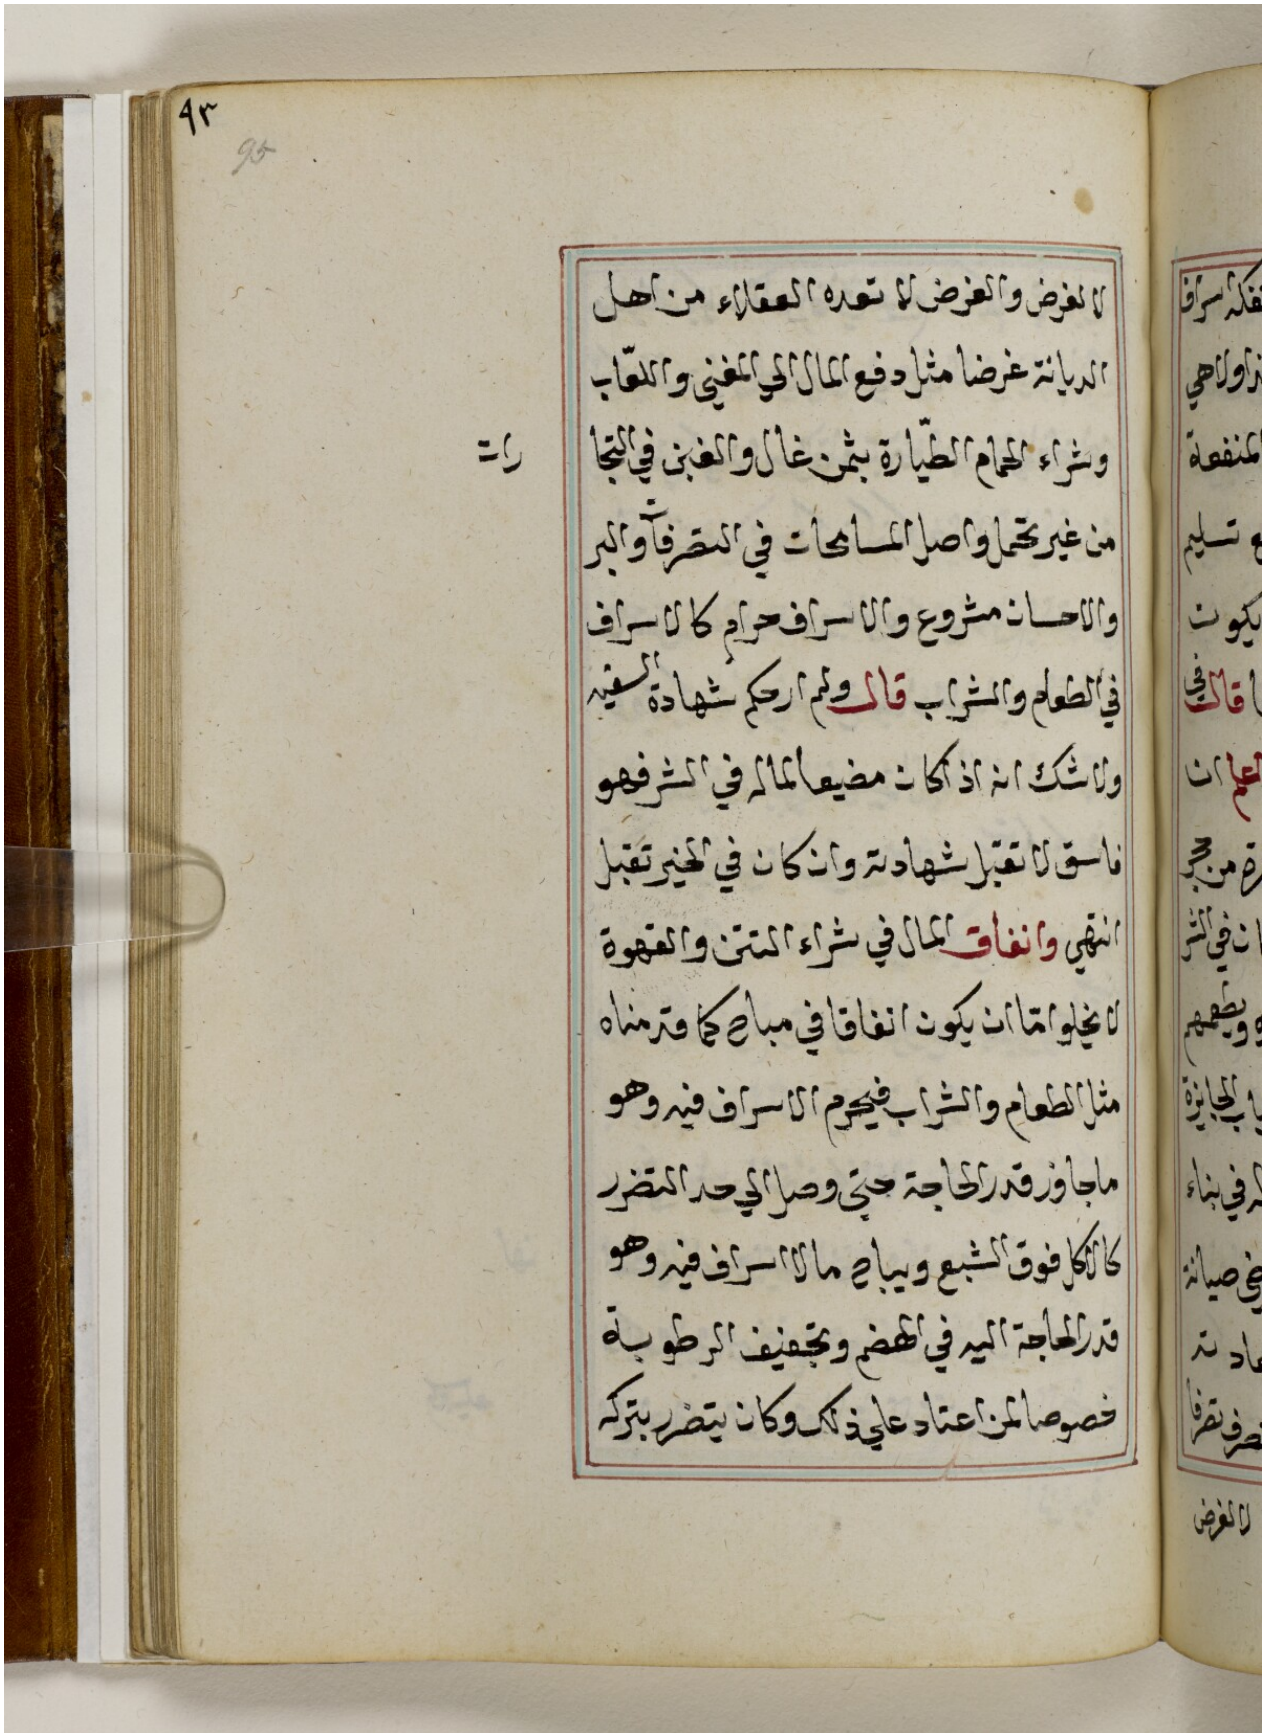 ٩٣
95
لا لغرض والغرض لا تعده العقلاء من اهل
الديانة غرضا مثل دفع المال الي المغني واللعّاب
وشراء الحمام الطيّارة بثمن غال والغبن في التجا
رات
من غير تحمل واصل المسامحات في التصرفات والبر
والاحسان مشروع والاسراف حرام كالاسراف
في الطعام والشراب قال ولم ار حكم شهادة السفيه
ولا شك انه اذا كان مضيعا لماله في الشر فهو
فاسق لا تقبل شهادته وان كان في الخير تقبل
انتهي وانفاق المال في شراء التتن والقهوة
لا يخلوا امّا ان يكون انفاقا في مباح كما قدمناه
مثل الطعام والشراب فيحرم الاسراف فيه وهو
ما جاوز قدر الحاجة حتي وصل الي حد التضرر
كالاكل فوق الشبع ويباح ما لا اسراف فيه وهو
قدر الحاجة اليه في الهضم وتجفيف الرطوبة
خصوصا لمن اعتاد علي ذلك وكان يتضرر بتركه
اسراف
اولا هي
المنفعة
تسليم
يكون
قال في
اعلم ان
من حجر
ان في الشر
ويطعمهم
الجايزة
في بناء
صيانة
تصرفا
لا لغرض